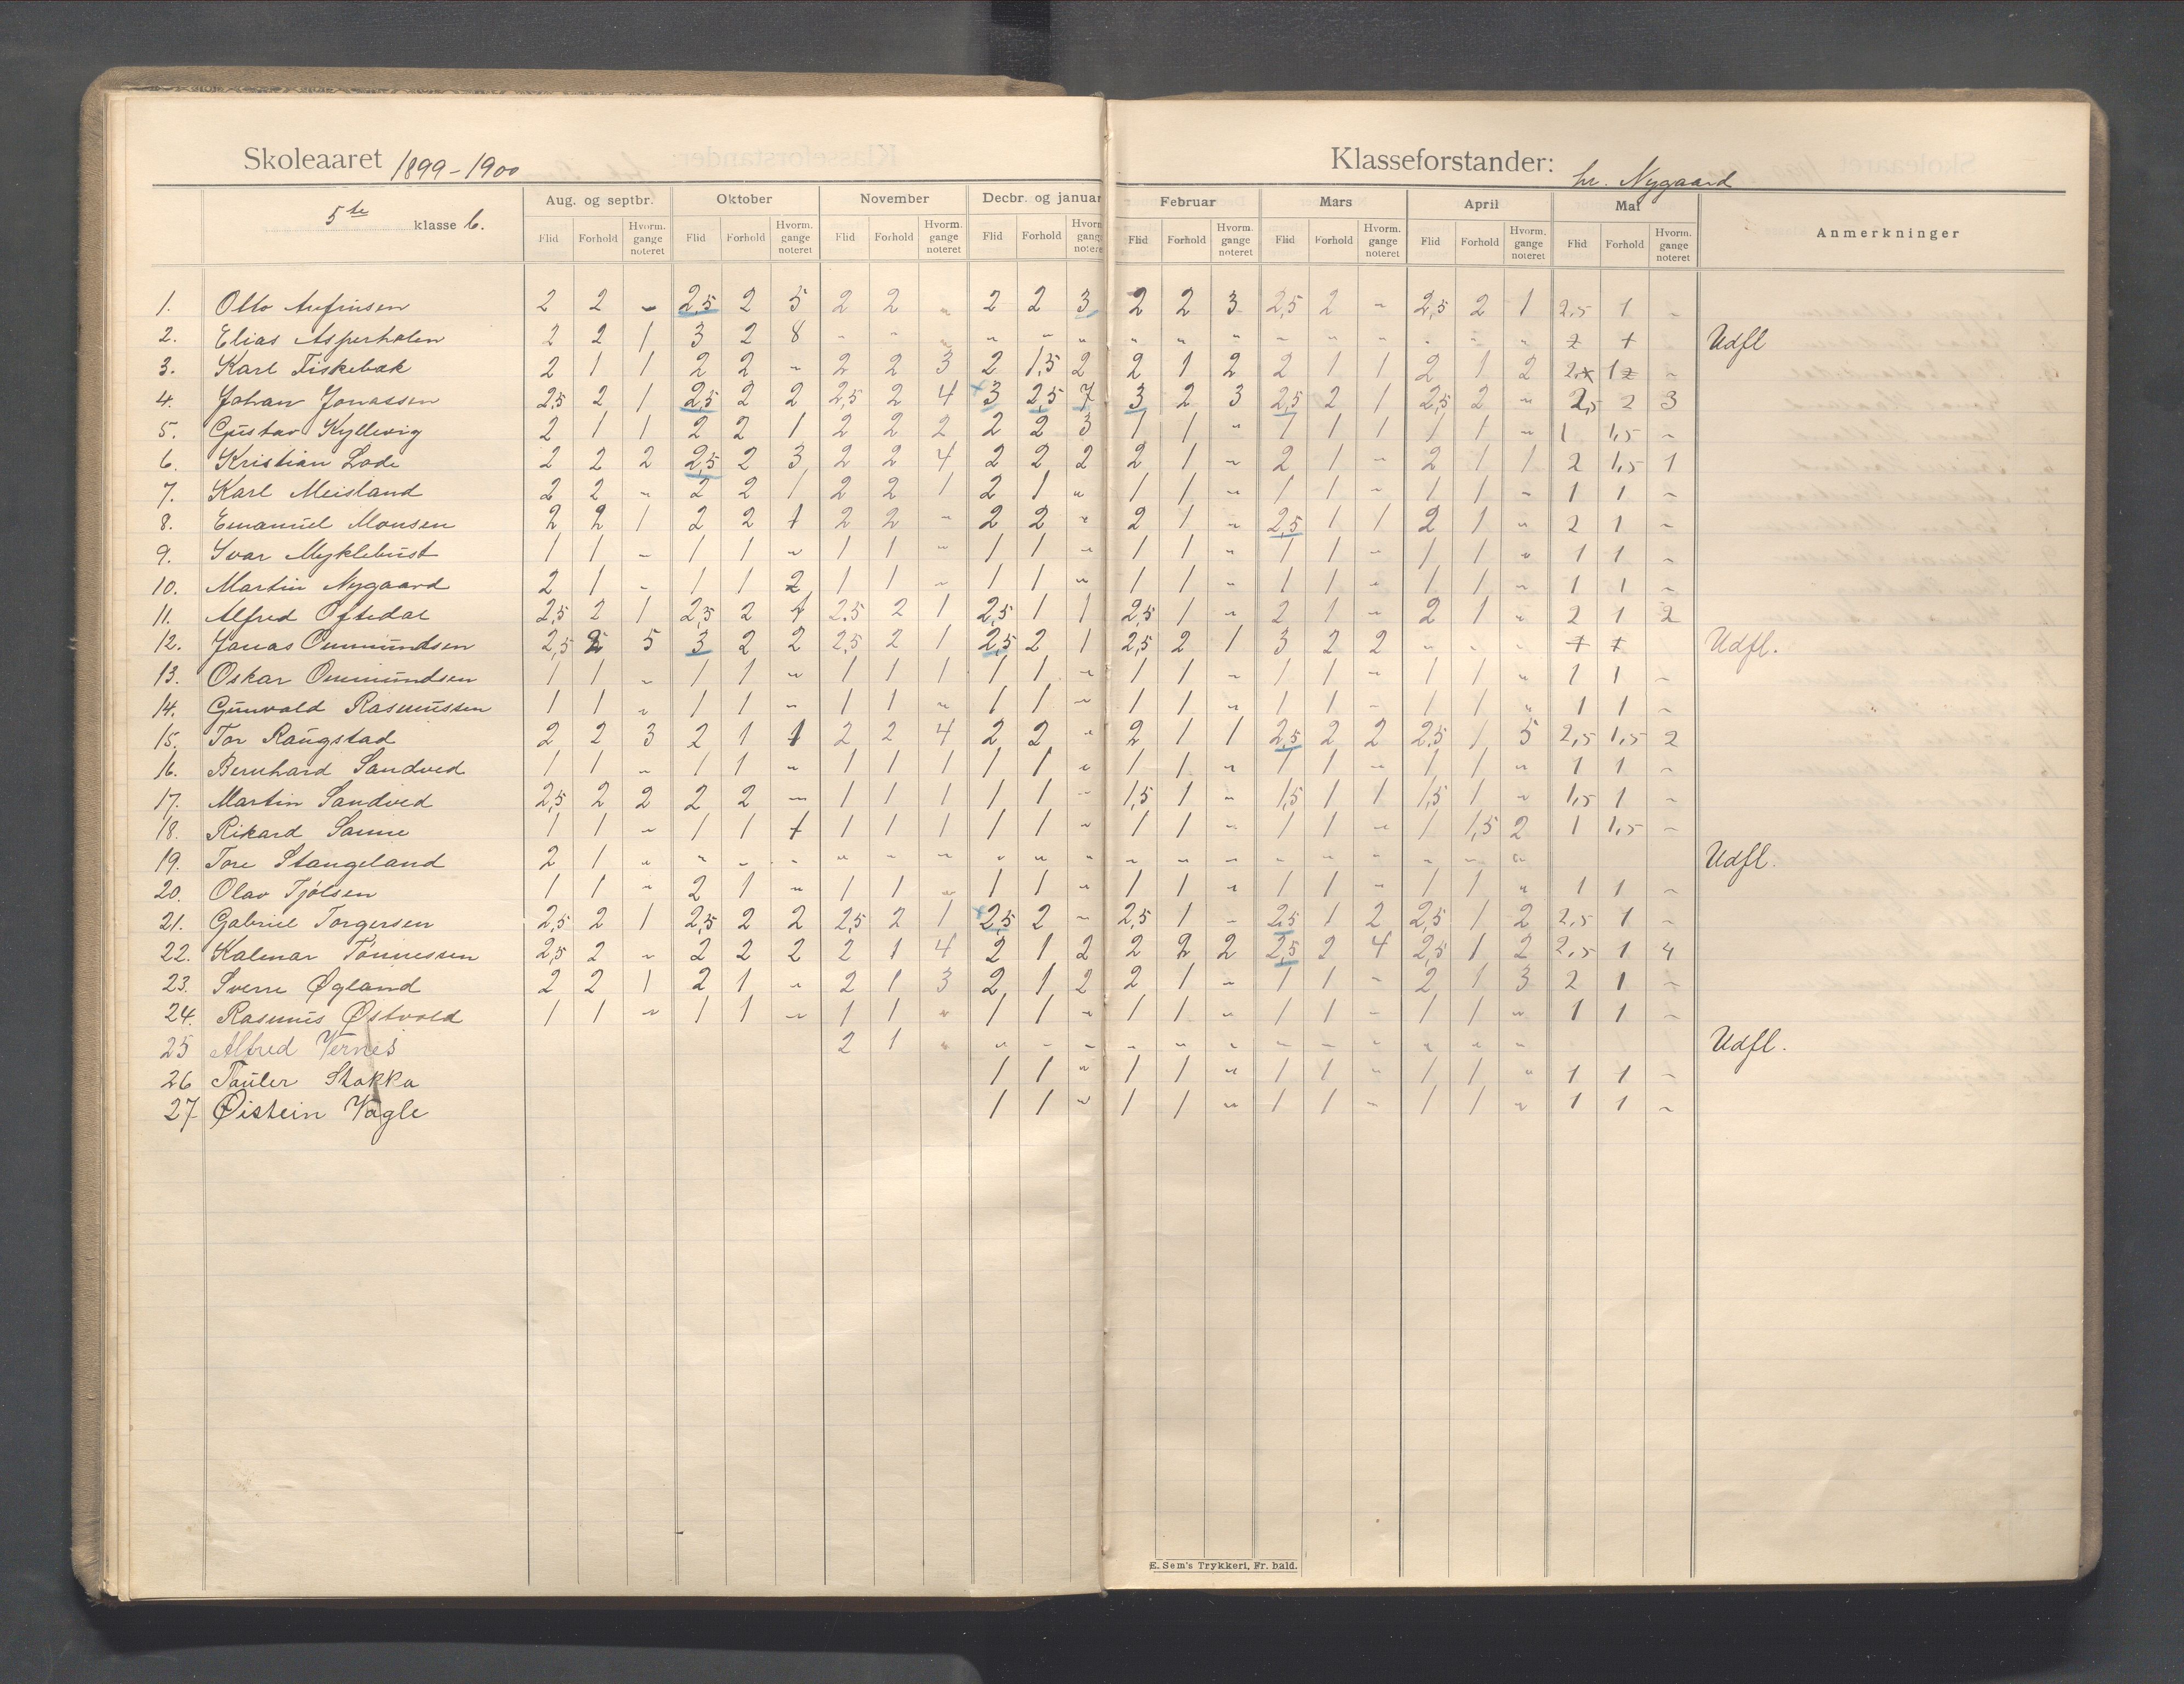 Skoleaaret 1899-1900 Klasseforstander: hr. Nygaard
5te klasse b.
Aug. og septbr. Oktober November Decbr. og januar Februar Mars April Mai Anmerkninger
Flid Forhold Hvorm. gange noteret Flid Forhold Hvorm. gange noteret Flid Forhold Hvorm. gange noteret Flid Forhold Hvorm. gange noteret Flid Forhold Hvorm. gange noteret Flid Forhold Hvorm. gange noteret Flid Forhold Hvorm. gange noteret Flid Forhold Hvorm. gange noteret
1. Otto 2 2 - 2,5 2 5 2 2 " 2 2 3 2 2 3 2,5 2 - 2,5 2 1 2,5 1 -
2. Elias Asperholen 2 2 1 3 2 8 - - " " - " " " " - - - - - " Udfl
3. Karl Fiskebæk 2 1 1 2 2 - 2 2 3 2 1,5 2 2 1 2 2 1 1 2 1 2 2 1 -
4. Johan Jonassen 2,5 2 1 2,5 2 2 2,5 2 4 3 2,5 7 3 2 3 2,5 2 1 2,5 2 - 2,5 2 3
5. Gustav Kyllevig 2 1 1 2 2 1 2 2 2 2 2 3 1 1 " 1 1 1 1 1 - 1 1,5 -
6. Kristian Lode 2 2 2 2,5 2 3 2 2 4 2 2 2 2 1 - 2 1 - 2 1 1 2 1,5 1
7. Karl Meisland 2 2 - 2 2 1 2 2 1 2 1 " 1 1 - 1 1 - 1 1 - 1 1 -
8. Emanuel Monsen 2 2 1 2 2 1 2 2 - 2 2 - 2 1 - 2,5 1 1 2 1 " 2 1 -
9. Ivar Myklebust 1 1 - 1 1 - 1 1 - 1 1 - 1 1 - 1 1 - 1 1 - 1 1 -
10. Martin Nygaard 2 1 - 1 1 2 1 1 - 1 1 - 1 1 - 1 1 - 1 1 - 1 1 -
11. Alfred Oftedal 2,5 2 1 2,5 2 1 2,5 2 1 2,5 1 1 2,5 1 - 2 1 - 2 1 - 2 1 2
12. Jonas Ommundsen 2,5 2 5 3 2 2 2,5 2 1 2,5 2 1 2,5 2 1 3 2 2 - - - 1 1 Udfl.
13. Oskar Ommundsen 1 1 - 1 1 - 1 1 1 1 1 - 1 1 - 1 1 - 1 1 - 1 1 -
14. Gunvald Rasmussen 1 1 - 1 1 - 1 1 - 1 1 - 1 1 - 1 1 - 1 1 - 1 1 -
15. Tor Raugstad 2 2 3 2 1 1 2 2 4 2 2 - 2 1 1 2,5 2 2 2,5 1 5 2,5 1,5 2
16. Bernhard Sandved 1 1 - 1 1 - 1 1 1 1 1 - 1 1 - 1 1 - 1 1 - 1 1 -
17. Martin Sandved 2,5 2 2 2 2 - 1 1 1 1 1 - 1,5 1 - 1,5 1 1 1,5 1 - 1,5 1 -
18. Rikard Sanne 1 1 - 1 1 1 1 1 1 1 1 - 1 1 - 1 1 - 1 1,5 2 1 1,5 -
19. Tore Stangeland 2 1 - - - - - - - - - - - - - - - - - - - Udfl.
20. Olav Tjølsen 1 1 - 2 1 - 1 1 - 1 1 - 1 1 - 1 1 - 1 1 - 1 1 -
21. Gabriel Torgersen 2,5 2 1 2,5 2 2 2,5 2 1 2,5 2 - 2,5 1 - 2,5 1 2 2,5 1 2 2,5 1 -
22. Kalmar Tønnessen 2,5 2 - 2 2 2 2 1 4 2 1 2 2 2 2 2,5 2 4 2,5 1 2 2,5 1 4
23. Sverre Øgland 2 2 1 2 1 - 2 1 3 2 1 2 2 1 - 1 1 - 2 1 3 2 1 -
24. Rasmus Østvold 1 1 - 1 1 - 1 1 - 1 1 - 1 1 - 1 1 - 1 1 - 1 1 -
25 Alfred Vernes 2 1 - - - - - - - - - - - - - Udfl.
26 Tauler Stakka 1 1 - 1 1 - 1 1 - 1 1 - 1 1 -
27. Øistein Vagle 1 1 - 1 1 - 1 1 - 1 1 - 1 1 -
E. Sem's Trykkeri, Fr. hald.